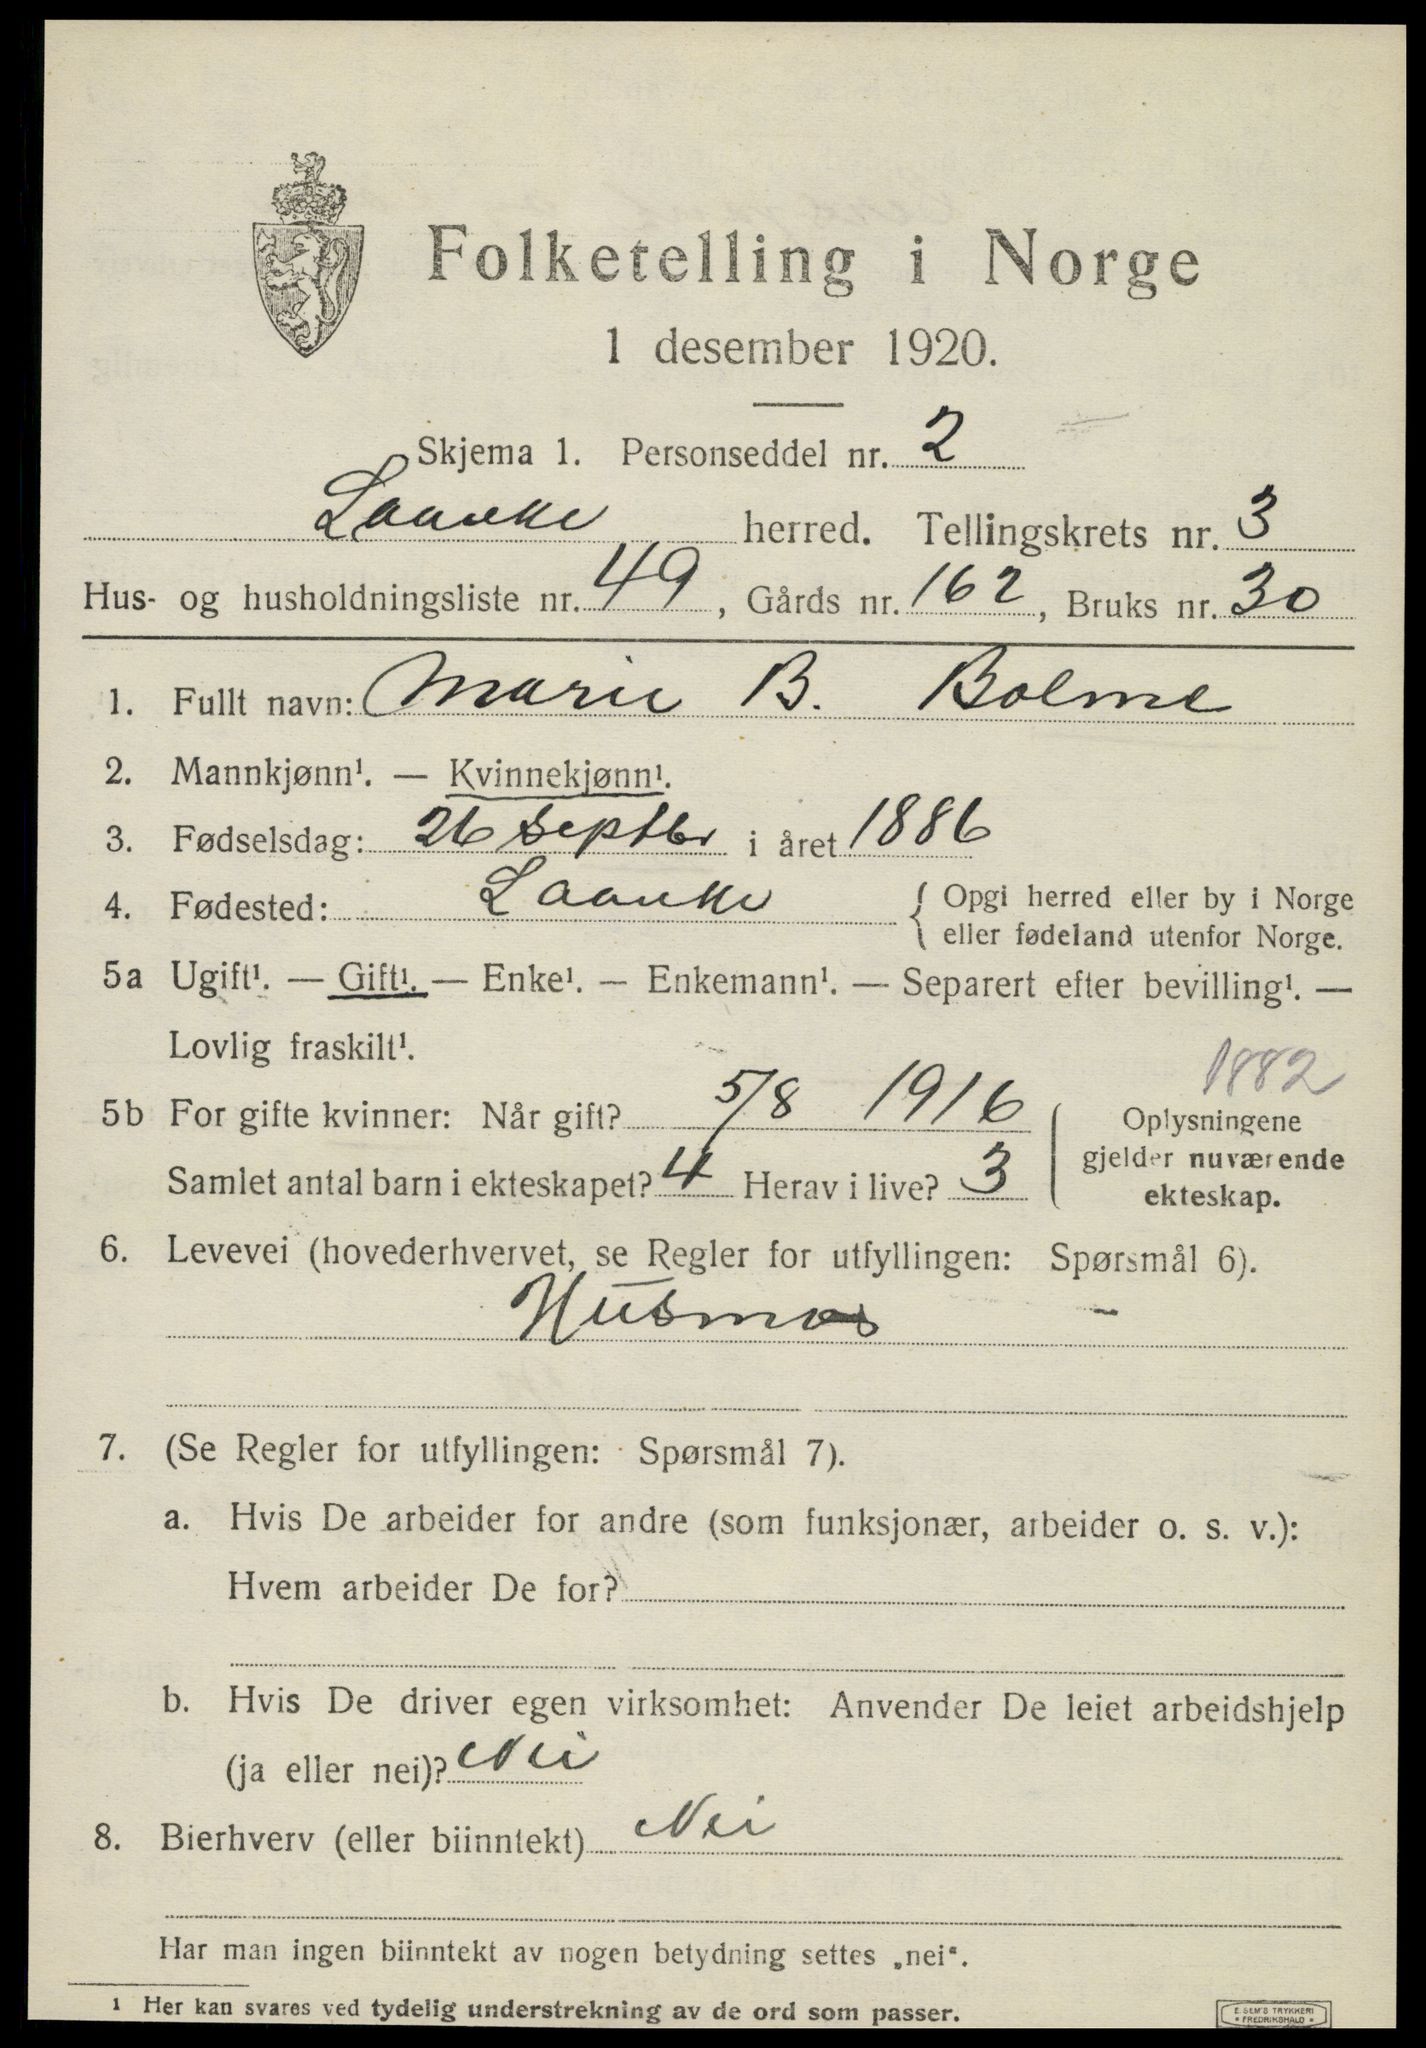 Folketelling i Norge
1 desember 1920.
Skjema 1. Personseddel nr. 2
Laanke herred. Tellingskrets nr. 3
Hus- og husholdningsliste nr. 49, Gårds nr. 162, Bruks nr. 30
1. Fullt navn: Marie B. Bolme
2. Mannkjønn¹. — Kvinnekjønn¹.
3. Fødselsdag: 26 septbr i året 1886
4. Fødested: Laanke { Opgi herred eller by i Norge
eller fødeland utenfor Norge.
5a Ugift¹. — Gift¹. — Enke¹. — Enkemann¹. — Separert efter bevilling¹. —
Lovlig fraskilt¹.
1882
5b For gifte kvinner: Når gift? 5/8 1916
Samlet antal barn i ekteskapet? 4 Herav i live? 3
Oplysningene
gjelder nuværende
ekteskap.
6. Levevei (hovederhvervet, se Regler for utfyllingen: Spørsmål 6).
Husmor
7. (Se Regler for utfyllingen: Spørsmål 7).
a. Hvis De arbeider for andre (som funksjonær, arbeider o. s. v.):
Hvem arbeider De for?
b. Hvis De driver egen virksomhet: Anvender De leiet arbeidshjelp
(ja eller nei)? Nei
8. Bierhverv (eller biinntekt) Nei
Har man ingen biinntekt av nogen betydning settes „nei“.
1 Her kan svares ved tydelig understrekning av de ord som passer.
E. SEM'S TRYKKERI
• FREDRIKSHALD •